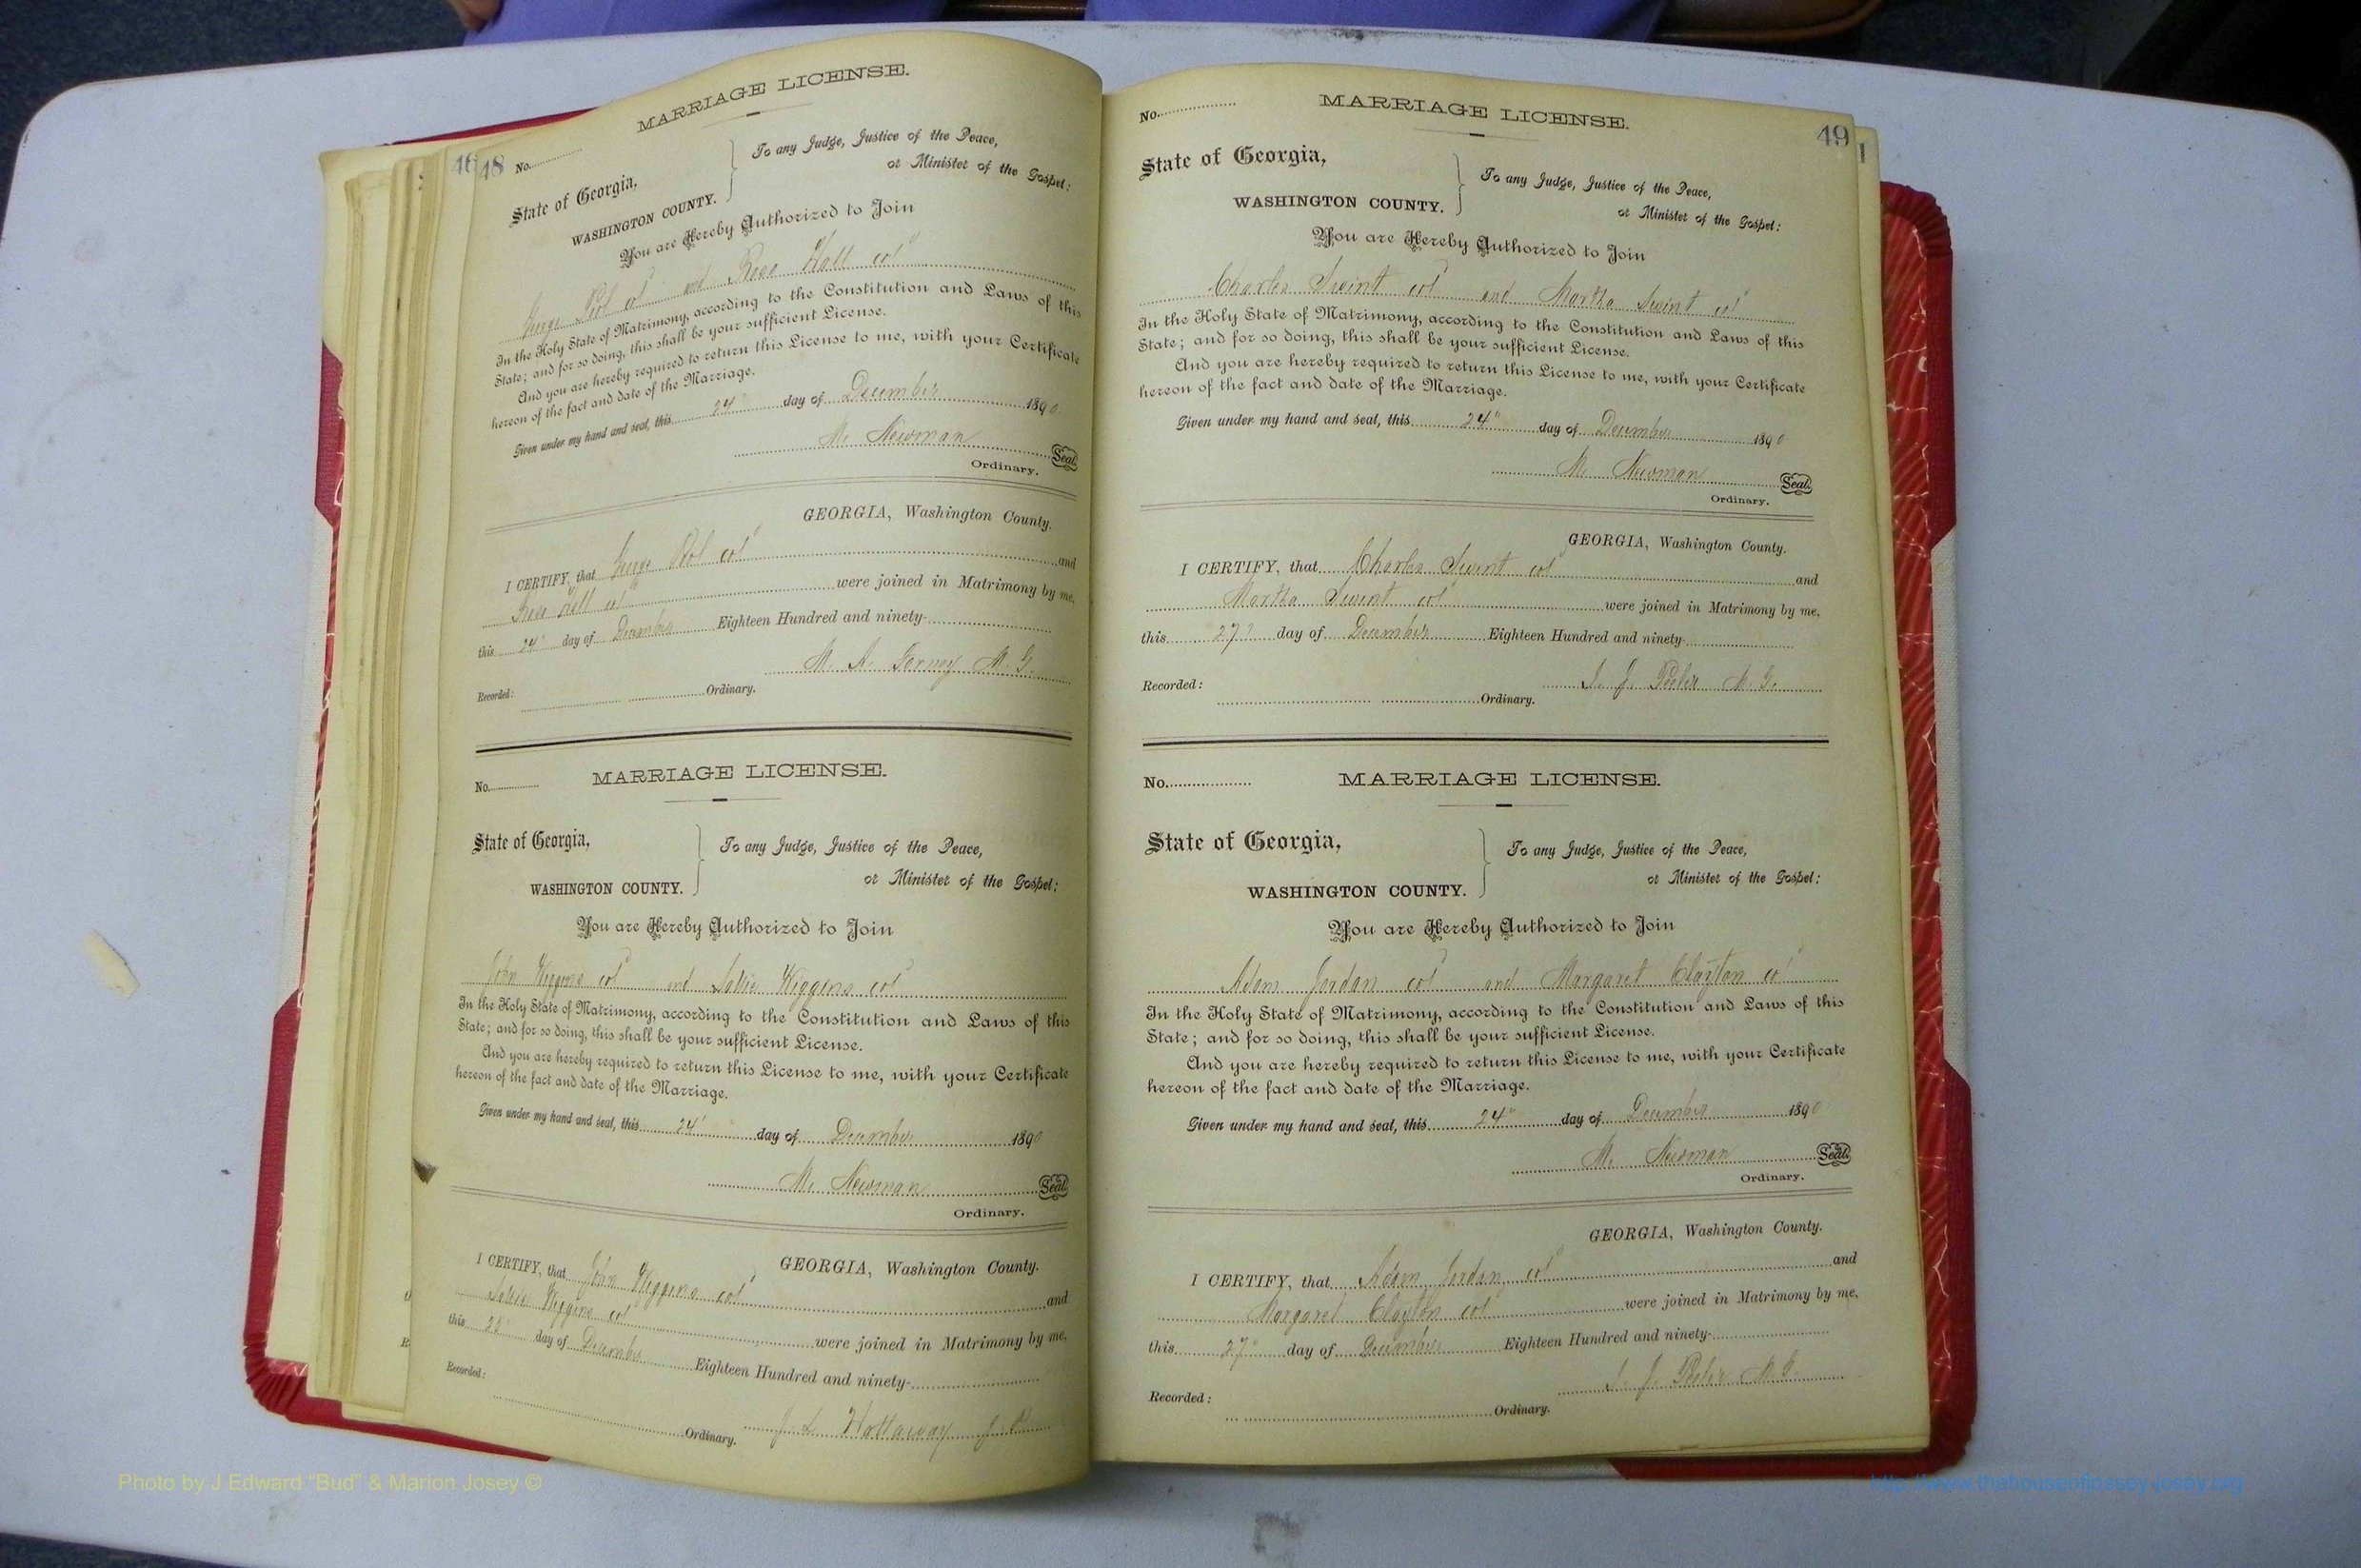 46
48
No.
MARRIAGE LICENSE.
State of Georgia,
WASHINGTON COUNTY.
To any Judge, Justice of the Peace,
or Minister of the Gospel:
You are Hereby Authorized to Join
George col and Rose Hall col
In the Holy State of Matrimony, according to the Constitution and Laws of this
State; and for so doing, this shall be your sufficient License.
And you are hereby required to return this License to me, with your Certificate
hereon of the fact and date of the Marriage.
Given under my hand and seal, this 24" day of December 1890
M. Newman Seal.
Ordinary.
GEORGIA, Washington County.
I CERTIFY, that George col and
Rose Hall col were joined in Matrimony by me,
this 24" day of December Eighteen Hundred and ninety-
M. G.
Recorded: Ordinary.
No. MARRIAGE LICENSE.
State of Georgia,
WASHINGTON COUNTY.
To any Judge, Justice of the Peace,
or Minister of the Gospel:
You are Hereby Authorized to Join
John Wiggins col and Sallie Wiggins col
In the Holy State of Matrimony, according to the Constitution and Laws of this
State; and for so doing, this shall be your sufficient License.
And you are hereby required to return this License to me, with your Certificate
hereon of the fact and date of the Marriage.
Given under my hand and seal, this 24" day of December 1890
M. Newman Seal.
Ordinary.
GEORGIA, Washington County.
I CERTIFY, that John Wiggins col and
Sallie Wiggins col were joined in Matrimony by me,
this day of December Eighteen Hundred and ninety-
Recorded:
Ordinary. J. L. Hattaway J. P.
No. MARRIAGE LICENSE.
49
State of Georgia,
WASHINGTON COUNTY.
To any Judge, Justice of the Peace,
or Minister of the Gospel:
You are Hereby Authorized to Join
Charles Swint col and Martha Swint col
In the Holy State of Matrimony, according to the Constitution and Laws of this
State; and for so doing, this shall be your sufficient License.
And you are hereby required to return this License to me, with your Certificate
hereon of the fact and date of the Marriage.
Given under my hand and seal, this 24" day of December 1890
M. Newman Seal.
Ordinary.
GEORGIA, Washington County.
I CERTIFY, that Charles Swint col and
Martha Swint col were joined in Matrimony by me,
this 27" day of December Eighteen Hundred and ninety-
S. J. Peeler M. G.
Recorded: Ordinary.
No. MARRIAGE LICENSE.
State of Georgia,
WASHINGTON COUNTY.
To any Judge, Justice of the Peace,
or Minister of the Gospel:
You are Hereby Authorized to Join
Adam Jordan col and Margaret Clayton col
In the Holy State of Matrimony, according to the Constitution and Laws of this
State; and for so doing, this shall be your sufficient License.
And you are hereby required to return this License to me, with your Certificate
hereon of the fact and date of the Marriage.
Given under my hand and seal, this 24" day of December 1890
M. Newman Seal.
Ordinary.
GEORGIA, Washington County.
I CERTIFY, that Adam Jordan col and
Margaret Clayton col were joined in Matrimony by me,
this 27" day of December Eighteen Hundred and ninety-
S. J. Peeler M. G.
Recorded: Ordinary.
Photo by J Edward “Bud” & Marion Josey ©
http://www.thehouseofjossey-josey.org